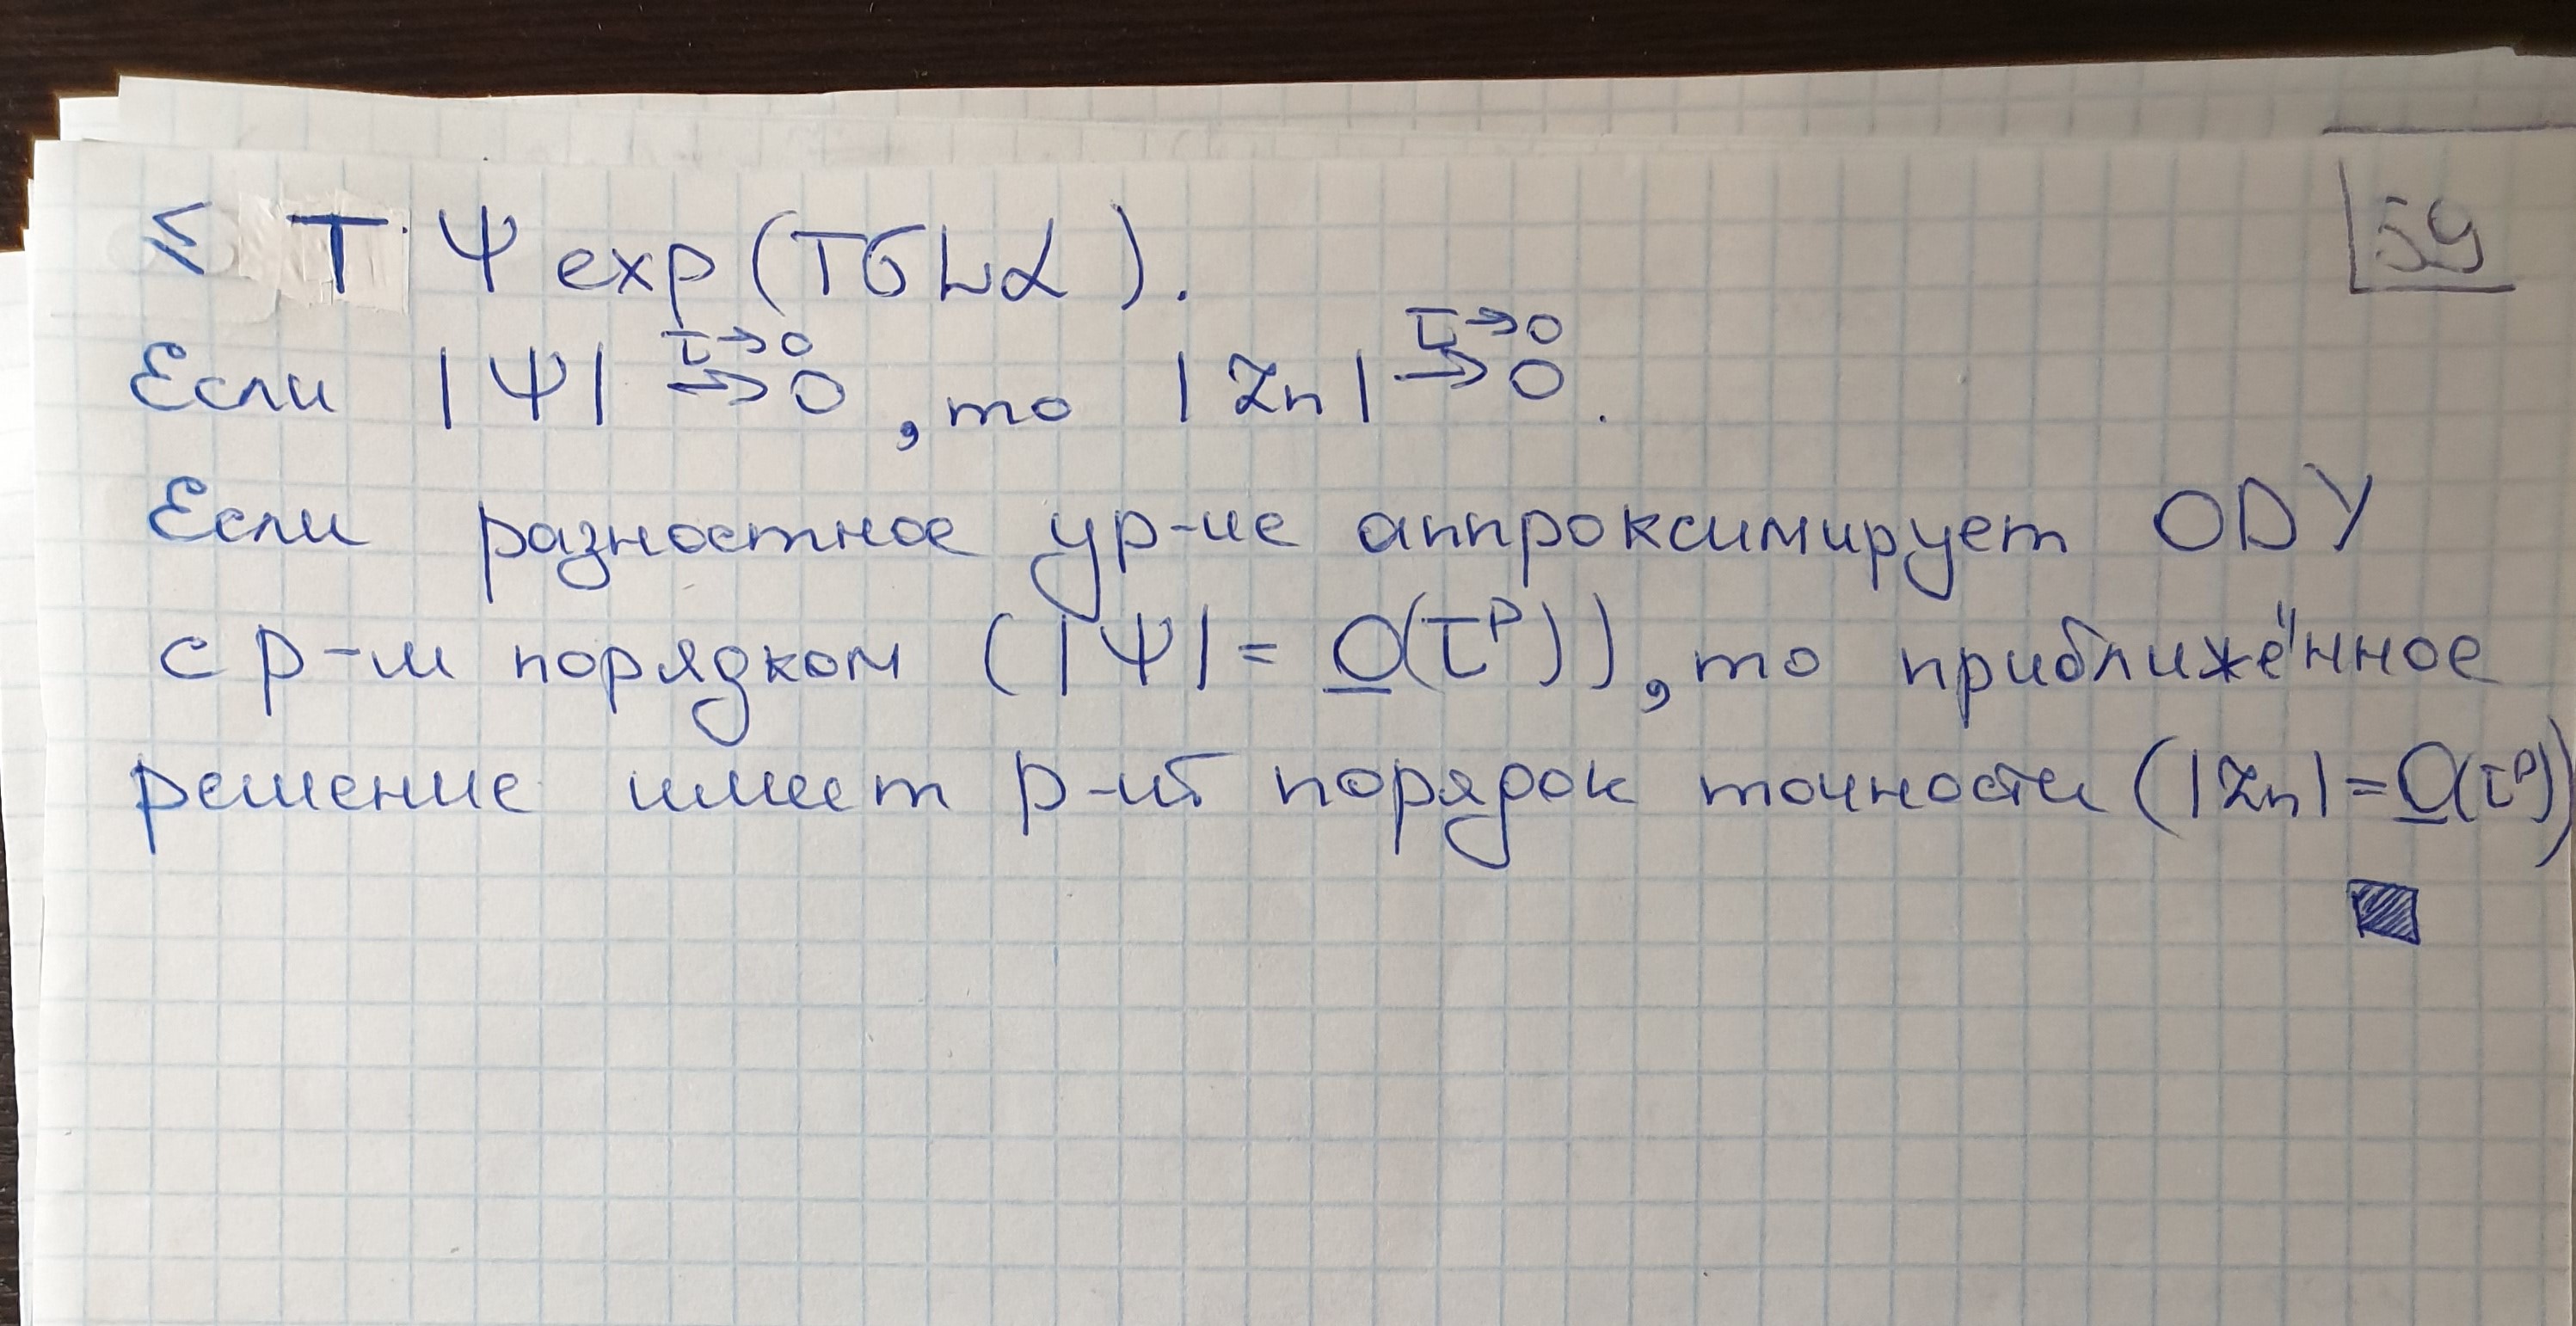 59
≤ T Ψ exp(TσLα).
Если |Ψ| →0 (τ→0), то |Zn| →0 (τ→0).
Если разностное ур-ие аппроксимирует ОДУ
с p-м порядком (|Ψ| = O(τ^p)), то приближённое
решение имеет p-ый порядок точности (|Zn| = O(τ^p))